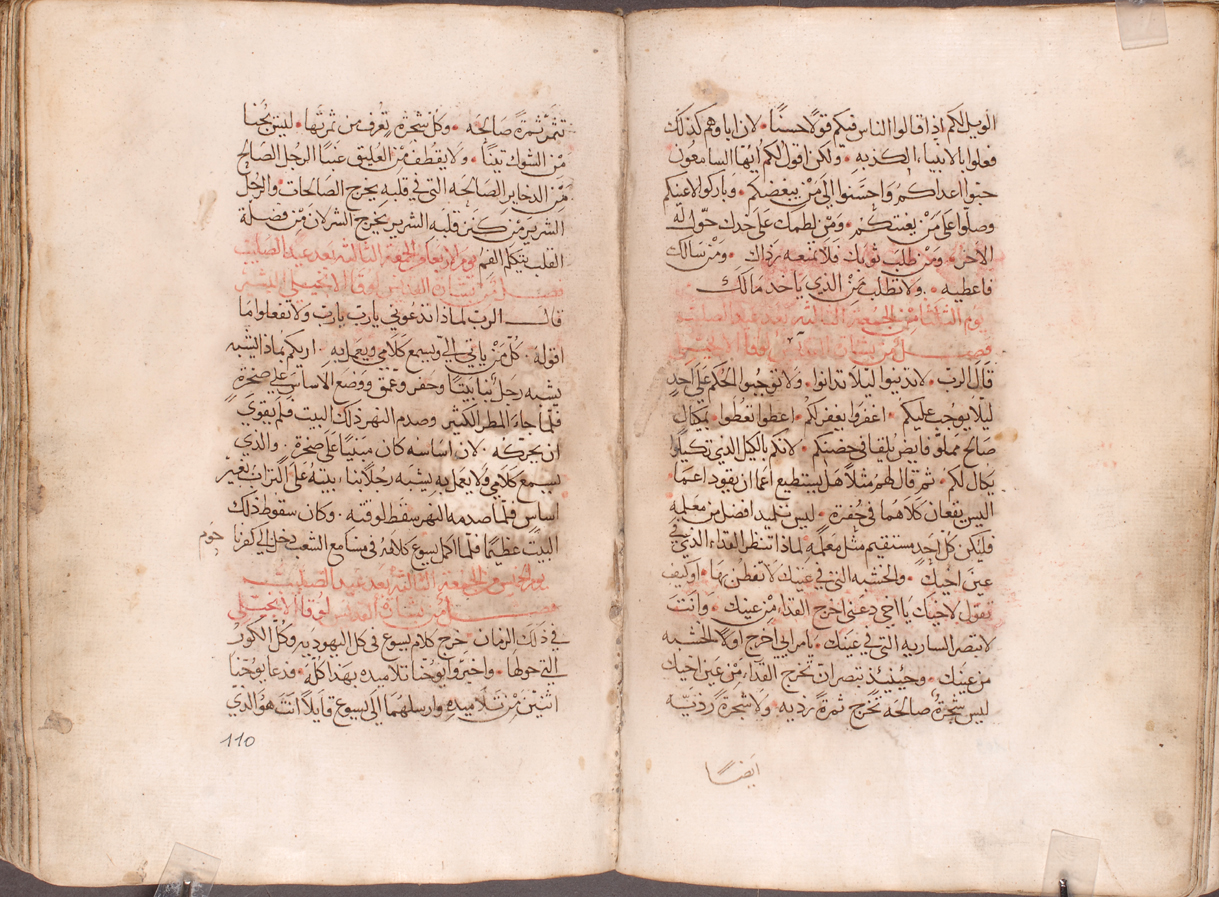 الويل لكم اذا قالوا الناس فيكم قولًا حسنًا • لان اباوهم كذلك
فعلوا بالانبياء الكذبه • ولكن اقول لكم ايها السامعون
حبوا اعداكم واحسنوا الى من يبغضكم • وباركوا لاعنيكم
وصلوا على من يعنتكم • ومن لطمك على خدك حول له
الاخر • ومن طلب ثوبك فلا تمنعه رداك • ومن سالك
فاعطيه • ولا تطلب ممن الذي ياخد مالك
يوم الثلاثا من الجمعة الثالثه بعد عيد الصليب
فصل من بشارة القديس لوقا الانجيلي
قال الرب • لا تدينوا ليلا تدانوا • ولا توجبوا الحكم على احدٍ
ليلا يوجب عليكم • اغفروا يغفر لكم • اعطوا تعطوا • بمكيال
صالح مملوا فايض يلقا في حضنكم • لانكم بالكيل الذي تكيلوا
يكال لكم • ثم قال لهم مثلًا هل يستطيع اعما ان يقود اعمًا •
اليس يقعان كلاهما في حفرة • ليس تلميد افضل من معلمه
فليكن كل احدٍ مستقيم مثل معلمه لماذا تنظر القداء الذي في
عين اخيك • والخشبه التي في عينك لا تفطن بها • او كيف
تقول لاخيك يا اخي دعني اخرج القداء من عينك • وانت
لا تبصر الساريه التي في عينك • يامرايي اخرج اولًا الخشبه
من عينك • وحينيذ تبصر ان تخرج القداء من عين اخيك
ليس شجرة صالحه تخرج ثمرةً رديه • ولا شجرةً رديه
ايضًا
تثمر ثمرةً صالحه • وكل شجرة تعرف من ثمرتها • ليس يجنا
من الشوك تينًا • ولا يقطف من العليق عنبًا الرجل الصالح
من الدخاير الصالحه التي في قلبه يخرج الصالحات • والرجل
الشرير من كنز قلبه الشرير يخرج الشر لان من فضلة
القلب يتكلم الفم يوم الاربعا من الجمعة الثالثه بعد عيد الصليب
فصل من بشارة القديس لوقا الانجيلي البشير
قال الرب لماذا تدعوني يارب يارب ولا تفعلوا ما
اقوله • كل من ياتي الي ويسمع كلامي ويعمل به • اريكم بماذا يشبه
يشبه رجل بنا بيتًا وحفر وعمق ووضع الاساس على صخرةٍ
فلما جاء المطر الكثير وصدم النهر ذلك البيت فلم يقوي
ان يحركه • لان اساسه كان مبنيًا على صخرة • والذي
يسمع كلامي ولا يعمل به يشبه رجلًا بنا بيته على التراب بغير
اساس فلما صدمه النهر سقط لوقته • وكان سقوط ذلك
البيت عظيمًا فلما اكمل يسوع كلامه في مسامع الشعب دخل الي كفرنا
حوم
يوم الخميس من الجمعة الثالثه بعد عيد الصليب
فصل من بشارة القديس لوقا الانجيلي
في ذلك الزمان خرج كلام يسوع في كل اليهوديه وكل الكور
التي حولها • واخبروا يوحنا تلاميده بهذا كله • فدعا يوحنا
اثنين من تلاميده وارسلهما الى يسوع قايلًا انت هو الذي
110